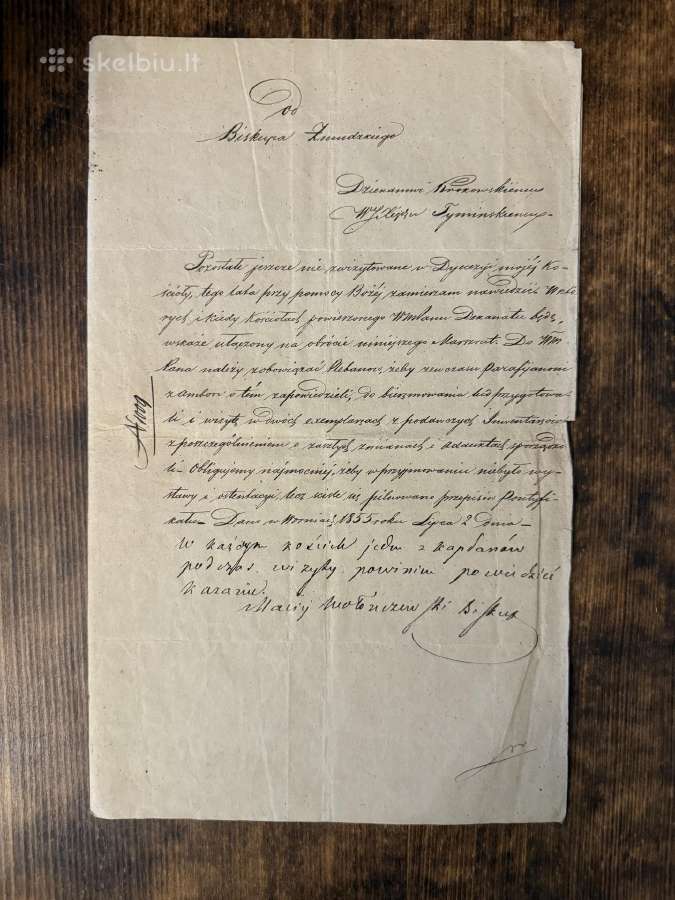 skelbiu.lt
Od
Biskupa Żmudzkiego
Dziekanowi
Tyminskiemu
Pozostałe jeszcze nie zwizytowane w Dyecezyi mojéj Ko-
ścioły, tego lata przy pomocy Bożéj zamierzam nawiedzić. W któ-
rych i kiedy Kościołach powierzonego WmPanu Dekanatu będę,
wskaże ułączony na obrócie niniejszego Marszrut. Do Wm
Pana należy zobowiązać Plebanów, żeby zewczasu Parafijanom
z ambon o tém zapowiedzieli, do bierzmowania lud przygotowa-
li i wizyty w dwóch exemplarzach z podawczych Inwentarzów
z poszczególnieniem o zaszłych zmianach i
li. Obligujemy najmocniéj, żeby w przyjmowaniu niebyło wy-
stawy i ostentacyi, lecz ściśle się pilnowano przepisów Pontyfi-
kału. Dan w Worniach 1855 roku Lipca 2 dnia
w każdym jeden z kapłanów
podczas wizyty powinien powiedzieć
kazanie.
Maciéj Wołonczewski Biskup